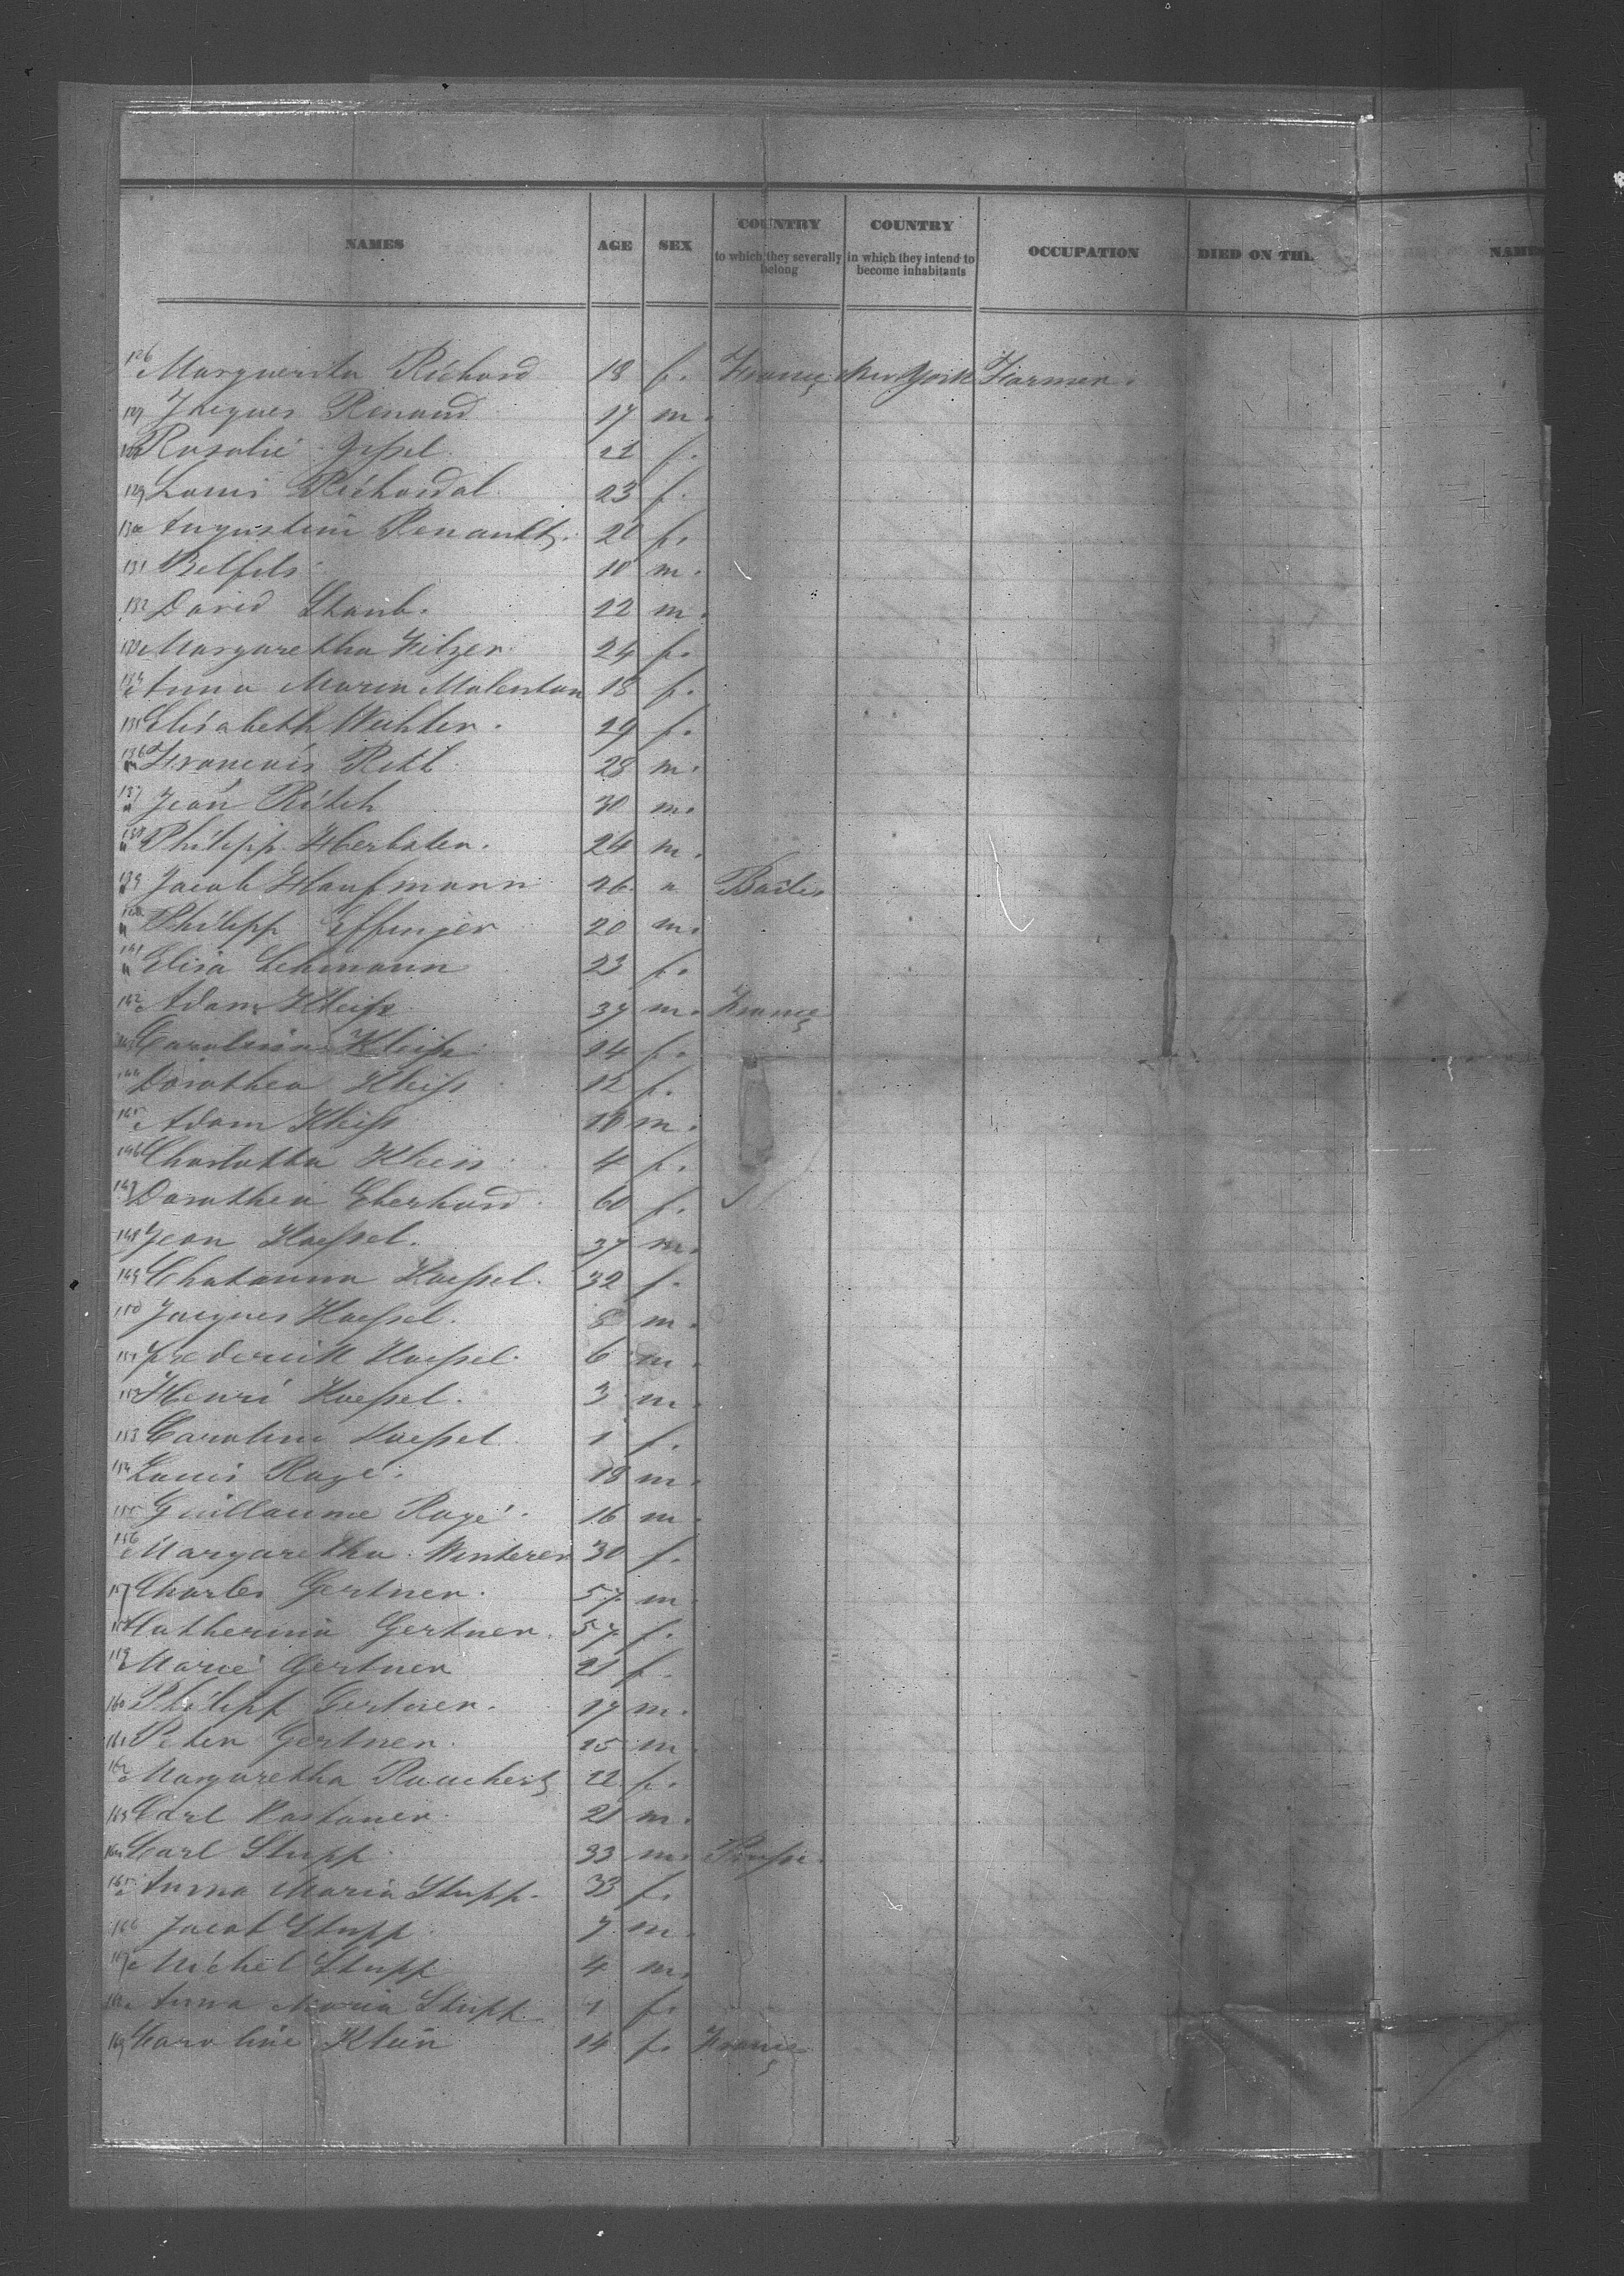 NAMES AGE SEX COUNTRY to which they severally belong COUNTRY in which they intend to become inhabitants OCCUPATION DIED ON THE NAMES
126 Marguerita Richard 18 f. France New York Farmer.
127 Jacques Renaud 17 m.
128 Rosalie Gessel 22 f.
129 Louis Richardal 23 f.
130 Augustin Renault 20 f.
131 Belfils 10 m.
132 David Staub. 12 m.
133 Margaretha Filzer. 24 f.
134 Anna Maria 18 f.
135 Elisabeth 29 f.
136 Francois Rett 28 m.
137 Jean Ritch 30 m.
138 Philipp 24 m.
139 Jacob Haufmann 26 " Baden
140 Philipp Effinger 20 m.
141 Elisa Lehmann 23 f.
142 Adam Kleiss 37 m. France
143 Carolina Kleiss 14 f.
144 Dorothea Kleiss 12 f.
145 Adam Kleiss 10 m.
146 Charlotta Kleiss 4 f.
147 Dorothea Eberhard 60 f.
148 Jean Haessel. 37 m.
149 Haessel. 32 f.
150 Jacques Haessel. 8 m.
151 Frederick Haessel. 6 m.
152 Henri Haessel. 3 m.
153 Caroline Haessel 1 f.
154 Louis Ragé. 18 m.
155 Guillaume Ragé. 16 m.
156 Margaretha Winterer 30 f.
157 Charles Gertner. 57 m.
158 Catherina Gertner. 57 f.
159 Marie Gertner 21 f.
160 Philipp Gertner. 17 m.
161 Peter Gertner. 15 m
162 Margaretha 22 f.
163 Carl 21 m.
164 Carl Stupp 33 m. Prussia.
165 Anna Maria Stupp. 33 f.
166 Jacob Stupp 7 m.
167 Michel Stupp 4 m.
168 Anna Maria Stupp. 1 f.
169 Caroline Klein 14 f. France